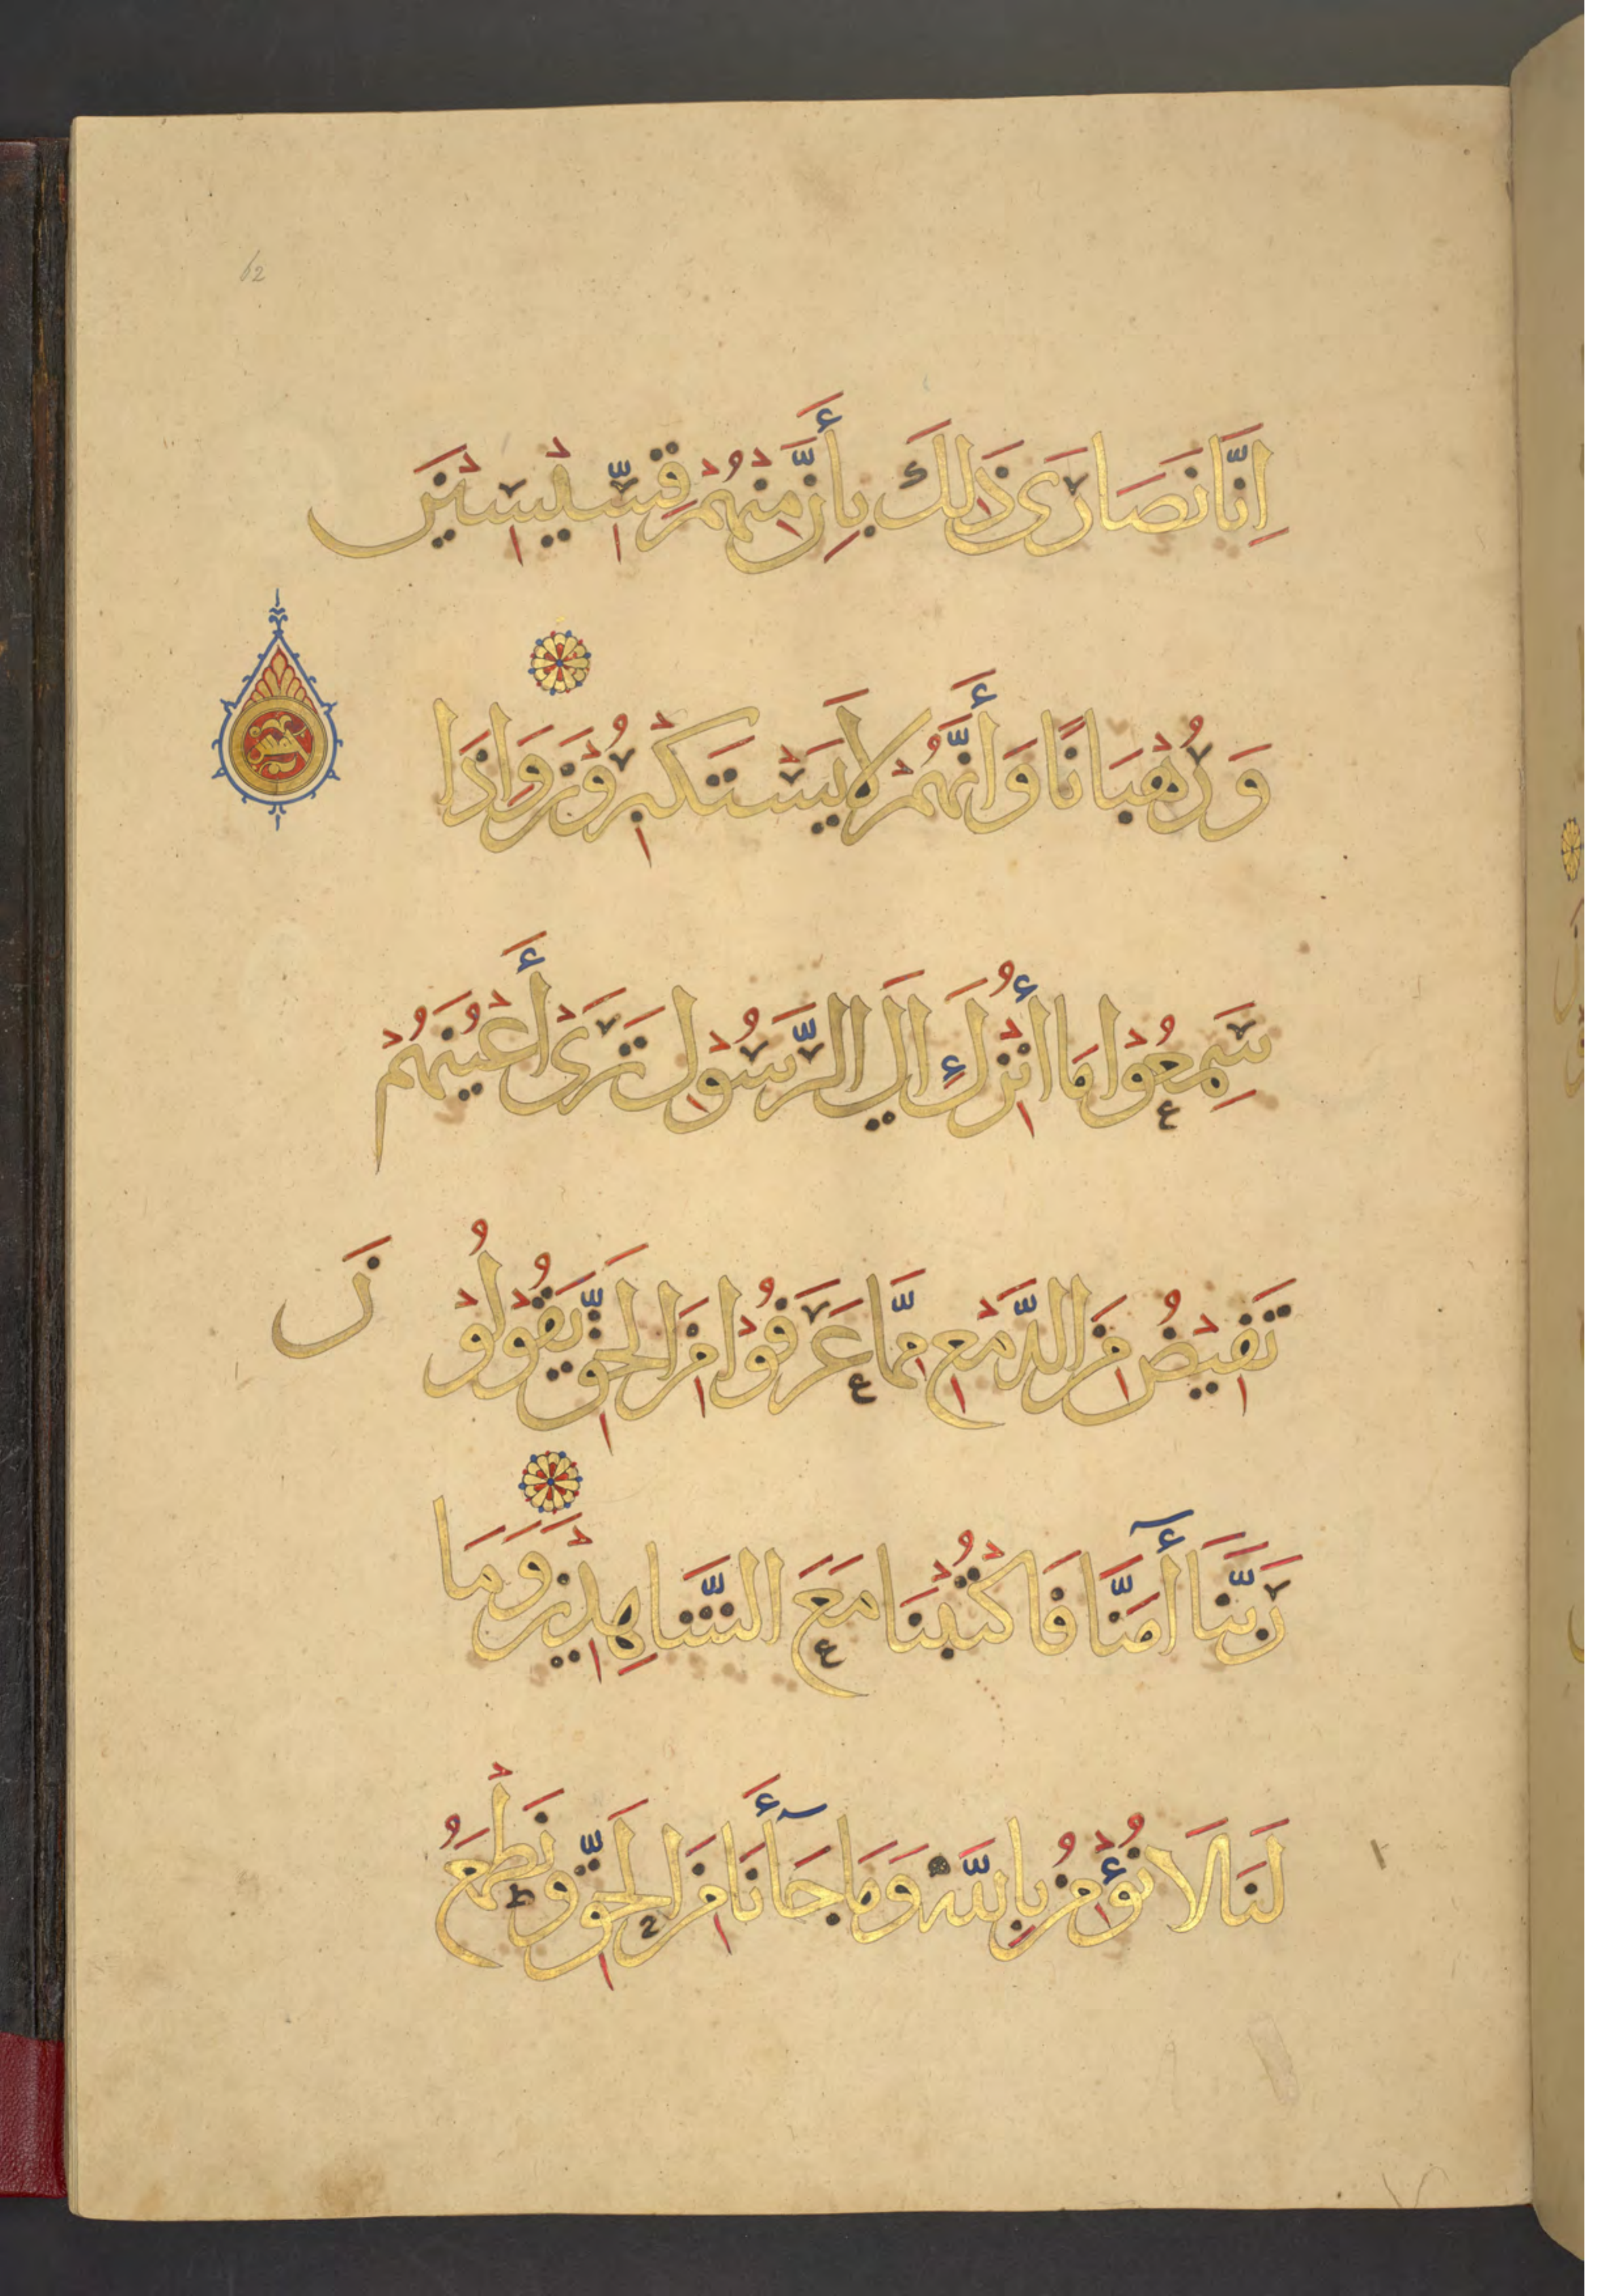 62
اِنَّا نَصَارَى ذَلِكَ بِأَنَّ مِنْهُمْ قِسِّيْسِيْنَ
وَرُهْبَانًا وَأَنَّهُمْ لَا يَسْتَكْبِرُوْنَ وَاِذَا
سَمِعُوْا مَا أُنْزِلَ اِلَي الرَّسُوْلِ تَرَىْ أَعْيُنَهُمْ
تَفِيْضُ مِنَ الدَّمْعِ مِمَّا عَرَفُوْا مِنَ الْحَقِّ يَقُوْلُوْنَ
رَبَّنَا أٓمَنَّا فَاكْتُبْنَا مَعَ الشَّاهِدِيْنَ وَمَا
لَنَا لَا نُؤْمِنُ بِاللّٰهِ وَمَا جَآأَنَا مِنَ الْحَقِّ وَنَطْمَعُ